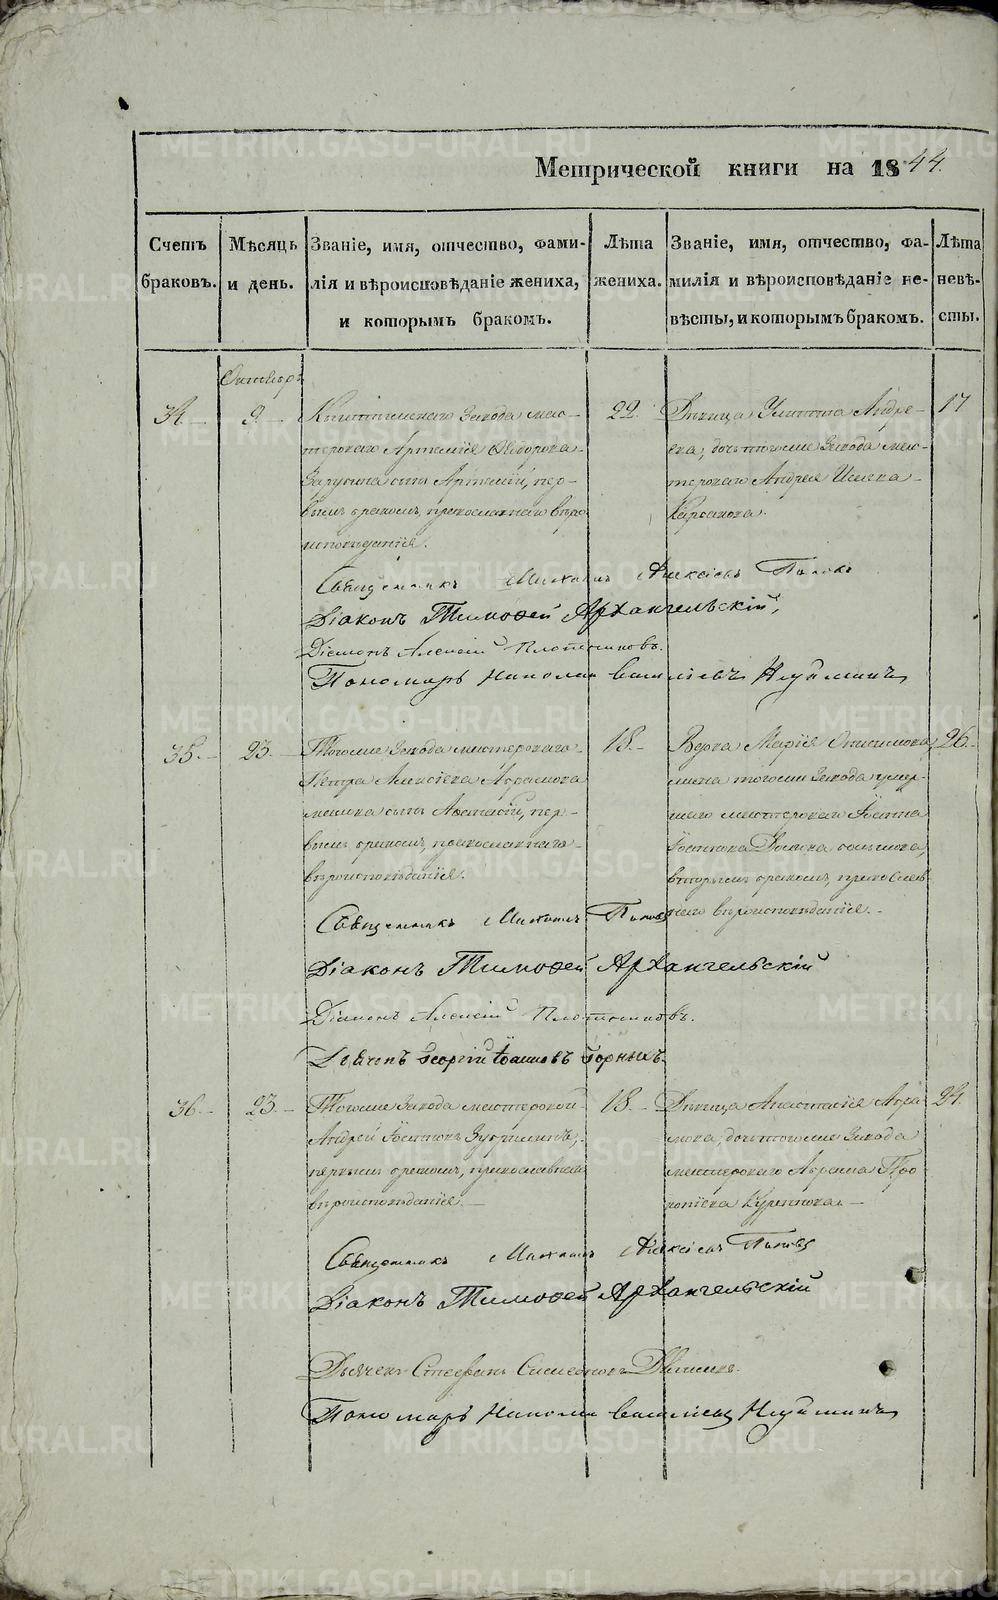 Метрической книги на 1844.
Счетъ браковъ.
Мѣсяць и день.
Званіе, имя, отчество, фами-
лія и вѣроисповѣданіе жениха,
и которымъ бракомъ.
Лѣта
жениха.
Званіе, имя, отчество, фа-
милія и вѣроисповѣданіе не-
вѣсты, и которымъ бракомъ.
Лѣта
невѣ-
сты.
Октябрь
34.
9.
завода мас-
тероваго Артемія Ѳедорова
сынъ Артемій, пер-
вымъ бракомъ, православнаго вѣро
исповѣданія.
22.
Дѣвица Андре-
ева, дочь тогоже завода мас-
тероваго Андрея Исаева
17
Священникъ Михаилъ Алексіевъ Поповъ
Діаконъ Тимоѳей Архангельскій,
Діаконъ Алексій Плотниковъ.
Пономарь Николай Васильевъ
35.
23.
Тогоже завода мастероваго
Петра Алексіева
сынъ пер-
вымъ бракомъ, православнаго
вѣроисповѣданія.
18.
Вдова Марія Онисимова
жена тогоже завода умер-
шаго мастероваго Іоанна
вторымъ бракомъ, православ
наго вѣроисповѣданія.
26.
Священникъ Михаилъ Поповъ
Діаконъ Тимоѳей Архангельскій
Діаконъ Алексій Плотниковъ.
Дьячекъ Георгій Іоанновъ Горныхъ.
36.
23.
Тогоже завода мастеровой
Андрей Іоанновъ
первымъ бракомъ, православнаго
вѣроисповѣданія.
18.
Дѣвица Анастасія Абра
мова, дочь тогоже завода
мастероваго Абрама Про
копіева
24.
Священникъ Михаилъ Алексіевъ Поповъ
Діаконъ Тимоѳей Архангельскій
Дьячекъ Стефанъ Симеоновъ
Пономарь Николай Васильевъ
METRIKI.GASO-URAL.RU